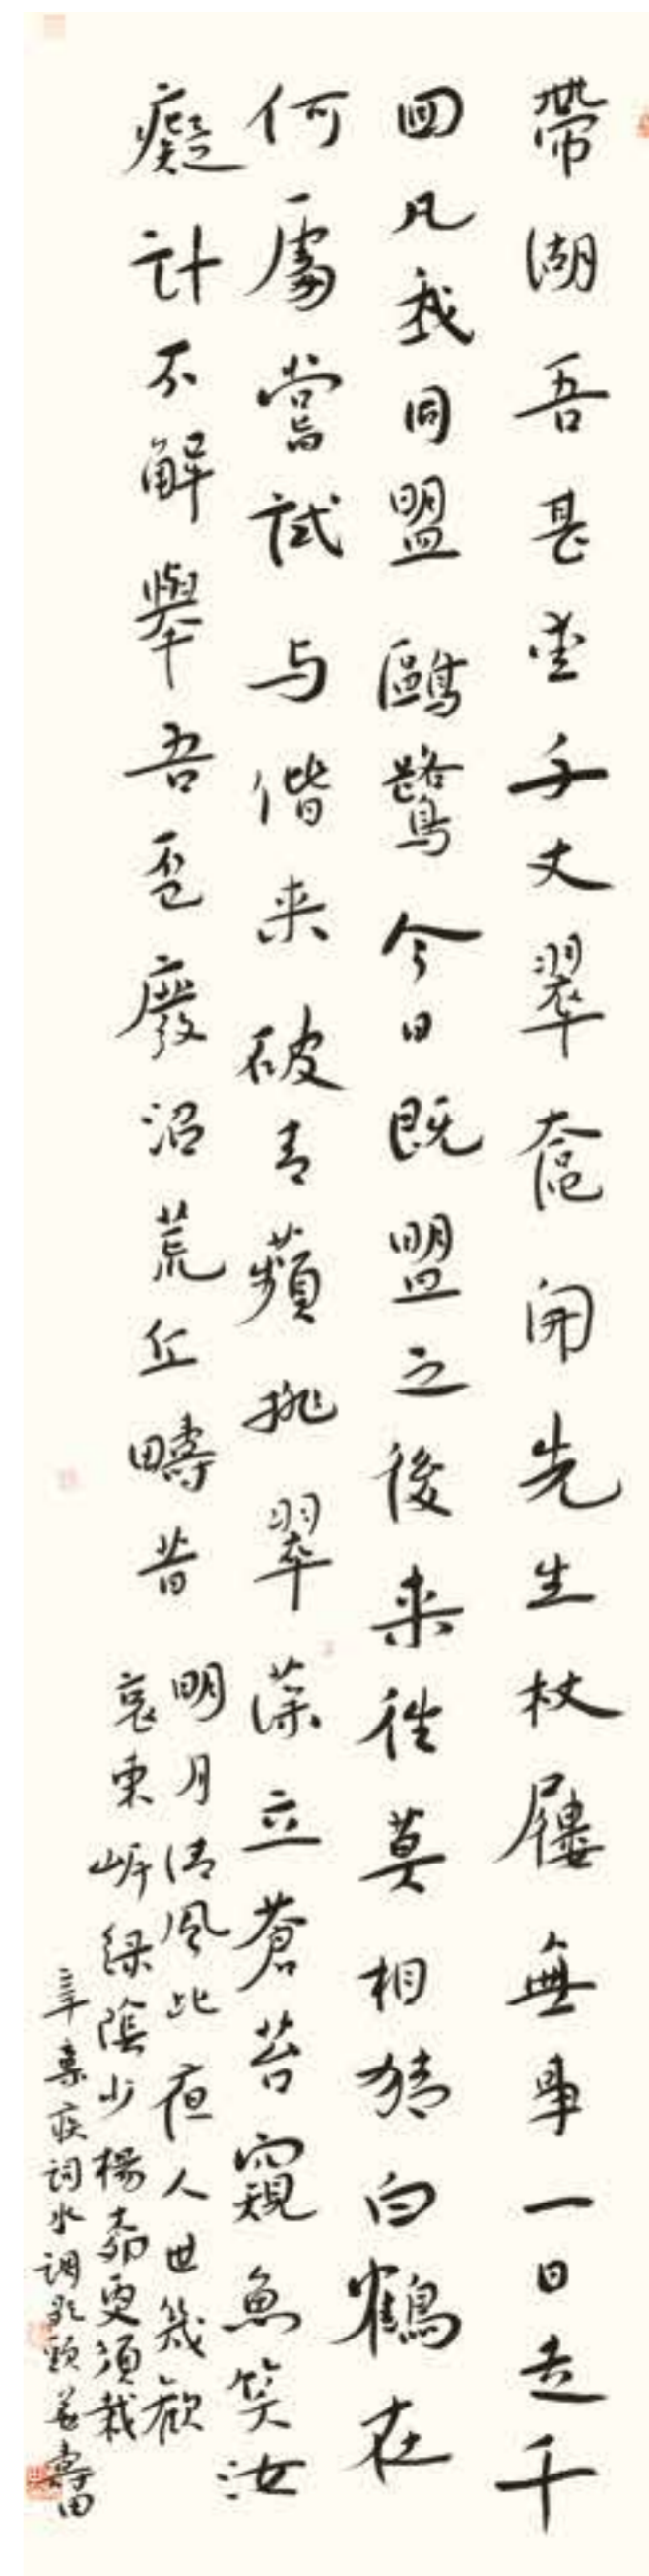 帶湖吾甚愛千丈翠奩開先生杖屨無事一日走千
回凡我同盟鷗鷺今日既盟之後来往莫相猜白鶴在
何處嘗試与偕来破青蘋排翠藻立蒼苔窺魚笑汝
癡計不解舉吾盃廢沼荒丘疇昔
明月清風此夜人世幾歡
哀東岸綠陰少楊柳更須栽
辛棄疾詞水调歌頭